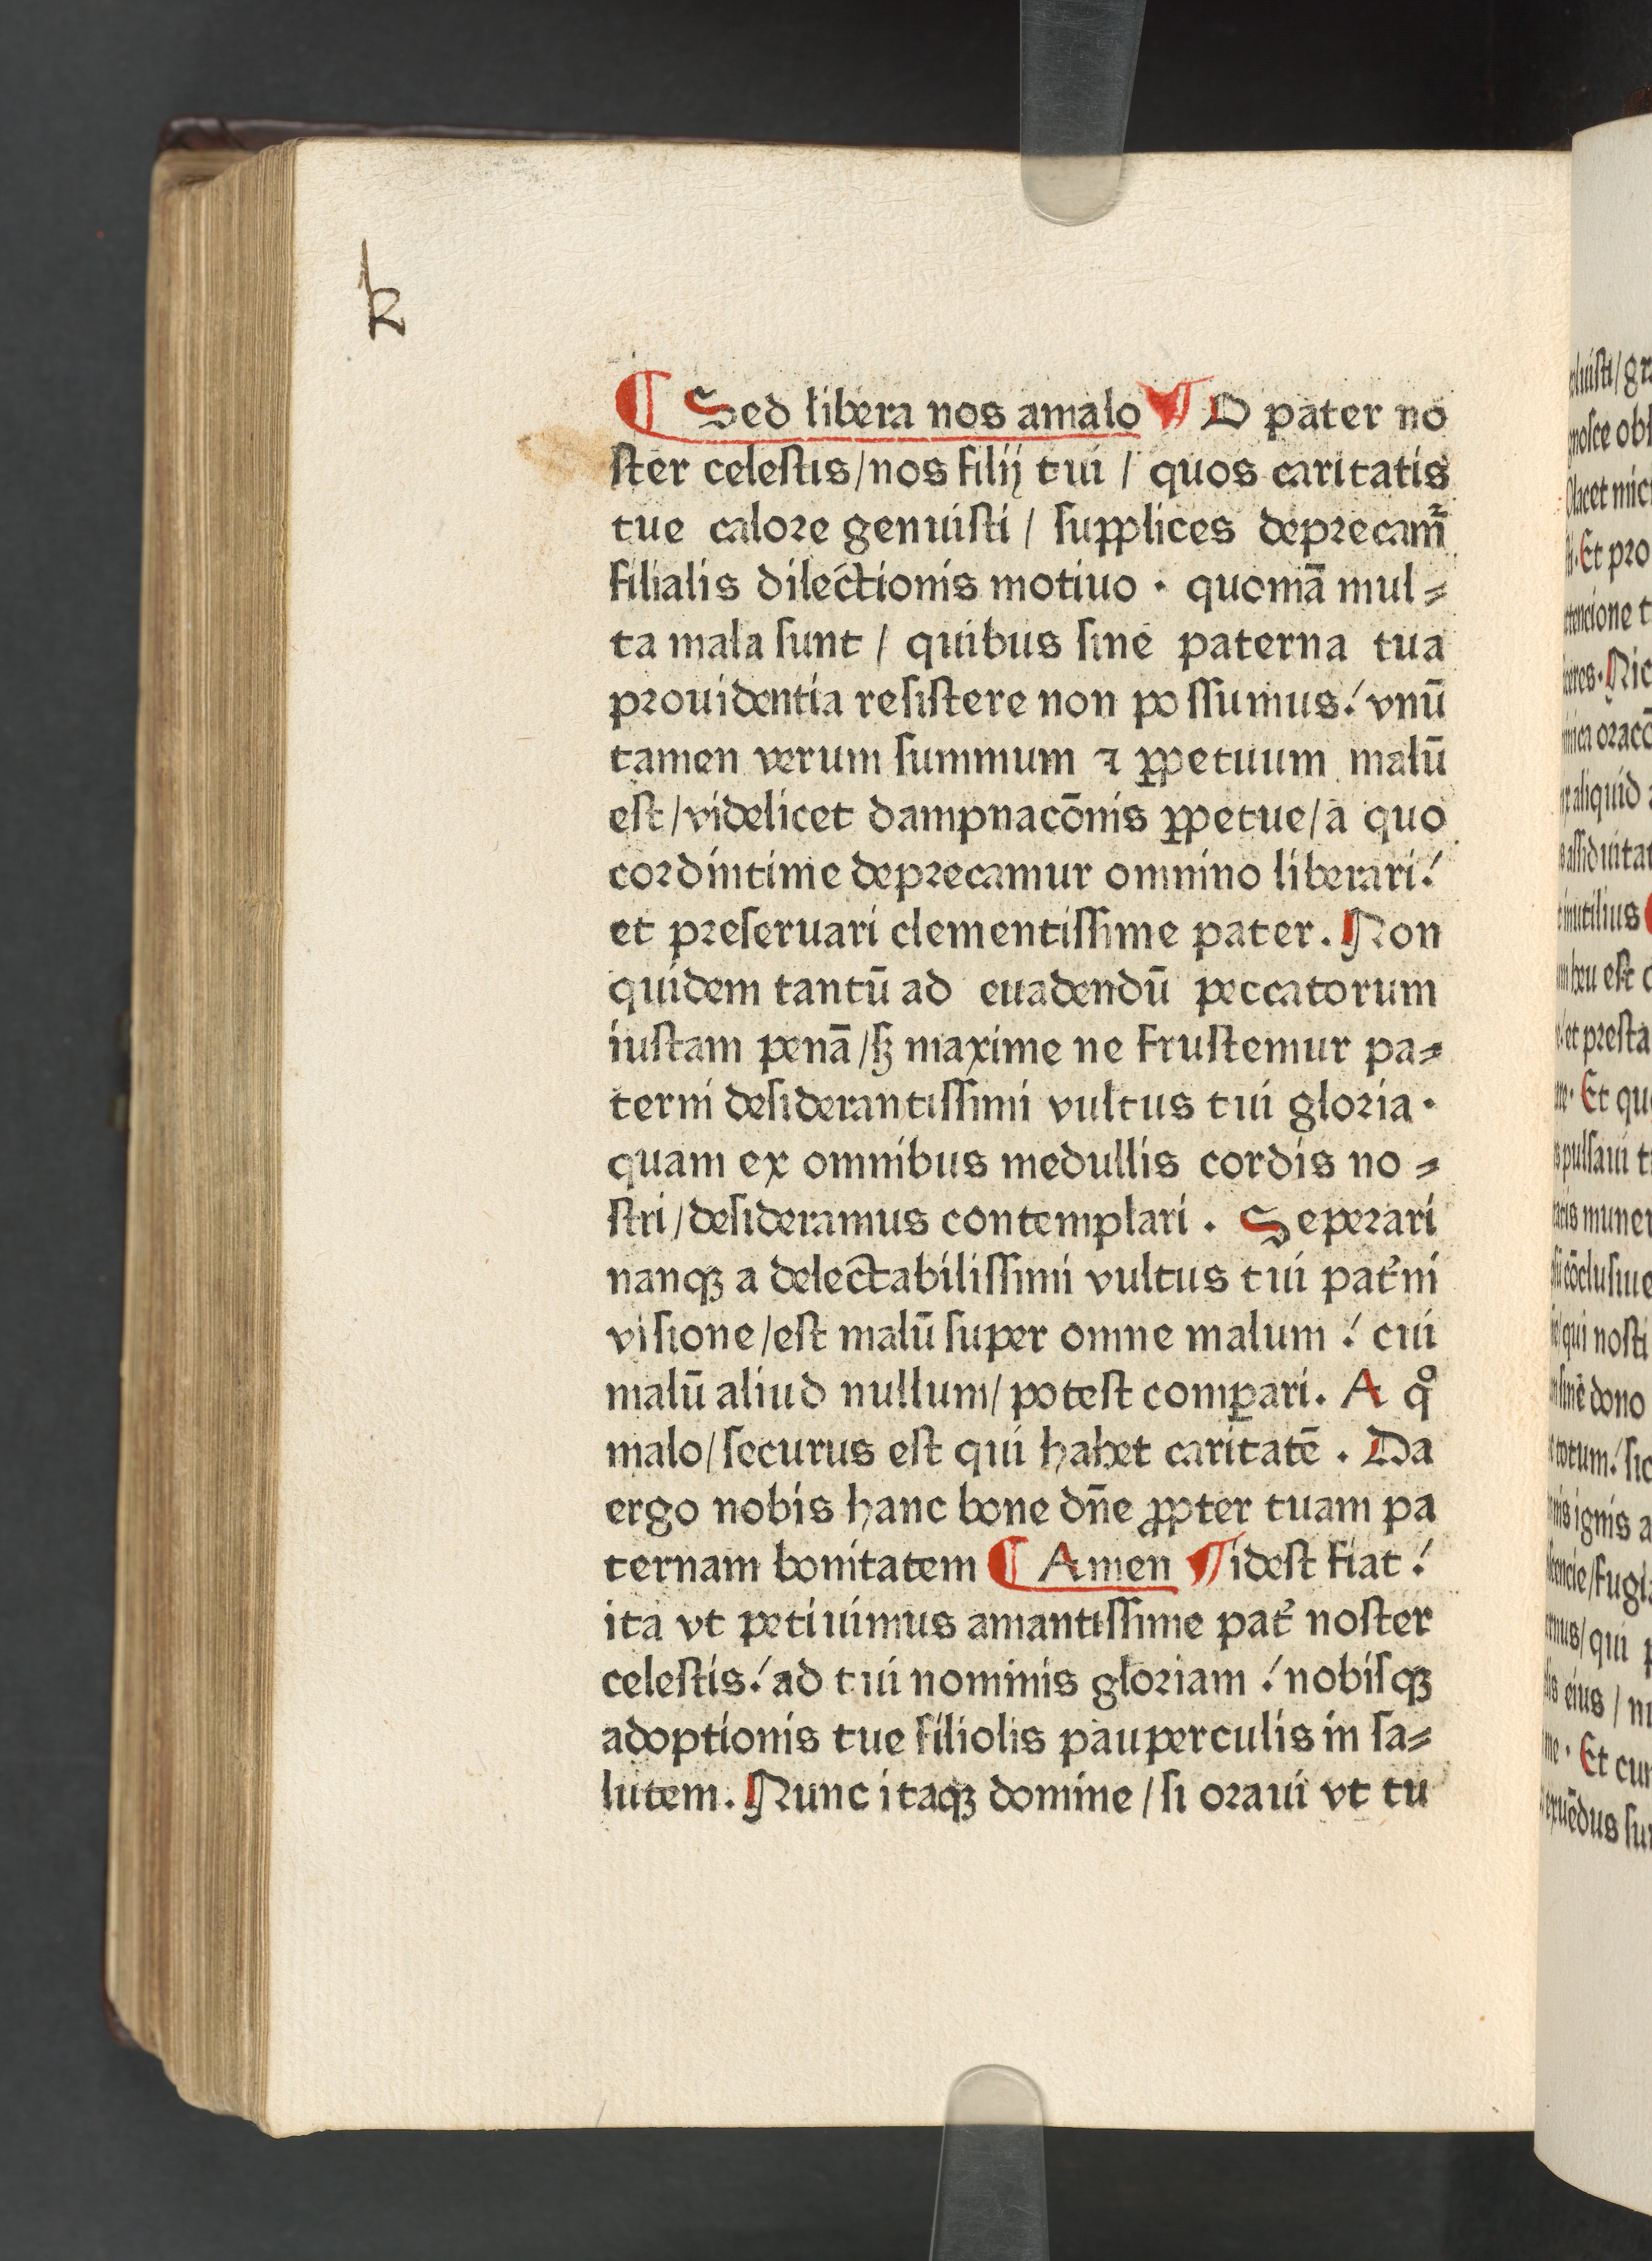 k
¶ Sed libera nos amalo ¶ O pater no
ſter celeſtis/nos filij tui / quos caritatis
tue calore genuiſti / ſupplices deprecam̃
filialis dilectionis motiuo · quoniā mul⸗
ta mala ſunt / quibus ſine paterna tua
prouidentia reſiſtere non poſſumus! vnū
tamen verum ſummum ⁊ ꝑpetuum malū
eſt/videlicet dampnacōnis ꝑpetue/a quo
cordintime deprecamur omnino liberari!
et preſeruari clementiſſime pater. Non
quidem tantū ad euadendū peccatorum
iuſtam penā/ſꝫ maxime ne fruſtemur pa⸗
terni deſiderantiſſimi vultus tui gloria·
quam ex omnibus medullis cordis no⸗
ſtri/deſideramus contemplari. Seperari
nanqꝫ a delectabiliſſimi vultus tui pat̉ni
viſione/eſt malū ſuper omne malum! cui
malū aliud nullum/poteſt comꝑari. A qͦ
malo/ſecurus eſt qui habet caritatē. Da
ergo nobis hanc bone dn̄e ꝓpter tuam pa
ternam bonitatem ¶ Amen ¶ ideſt fiat!
ita vt petiuimus amantiſſime pat̉ noſter
celeſtis! ad tui nominis gloriam! nobiſqꝫ
adoptionis tue filiolis pauperculis in ſa⸗
lutem. Nunc itaqꝫ domine/ſi oraui vt tu